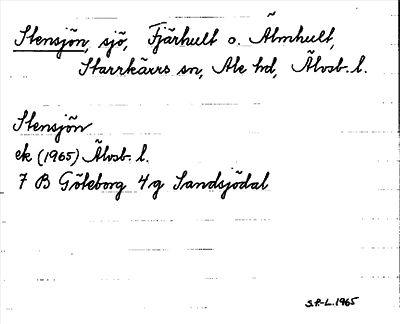 Stensjön, sjö, Fjärhult o. Älmhult,
Starrkärrs sn, Ale hd, Älvsb. l.
Stensjön
ek (1965) Älvsb. l.
7 B Göteborg 4g Sandsjödal
S.P.-L. 1965